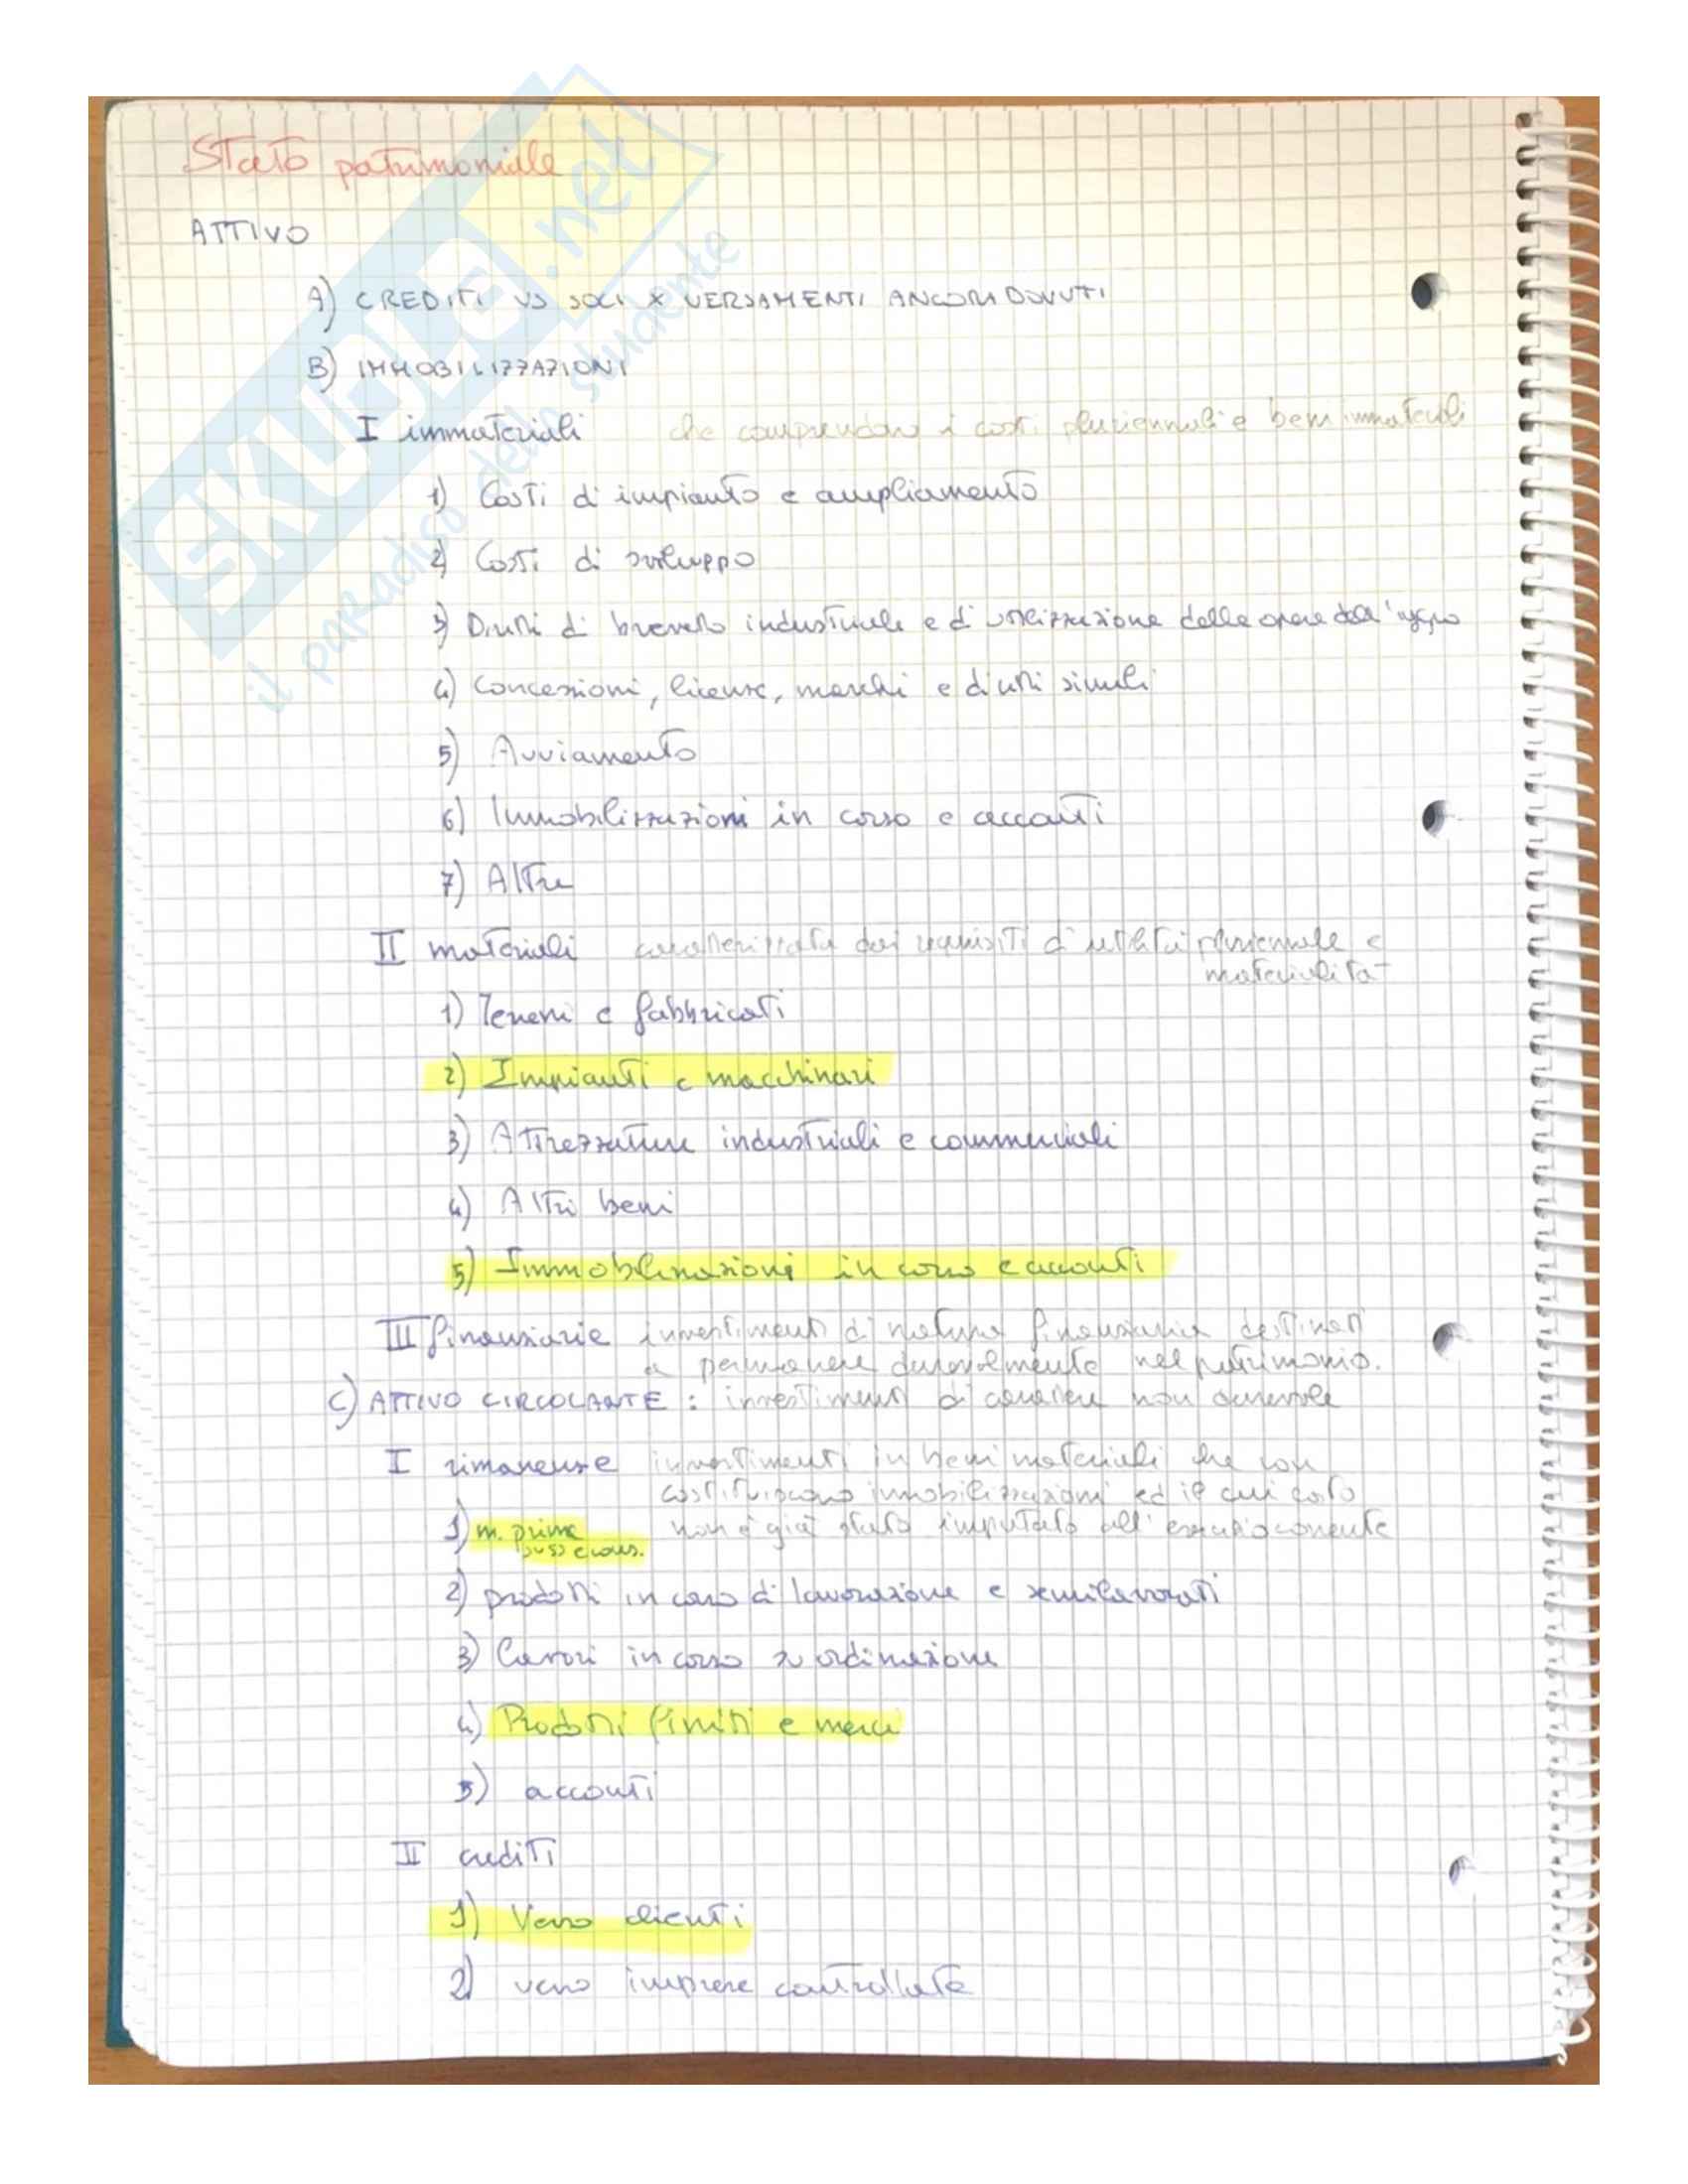 Stato patrimoniale
ATTIVO
A) CREDITI VS SOCI X VERSAMENTI ANCORA DOVUTI
B) IMMOBILIZZAZIONI
I immateriali che comprendono i costi pluriennali e beni immateriali
1) Costi di impianto e ampliamento
2) Costi di sviluppo
3) Diritti di brevetto industriale e di utilizzazione delle opere dell'
4) Concessioni, licenze, marchi e diritti simili
5) Avviamento
6) Immobilizzazioni in corso e acconti
7) Altre
II materiali caratterizzate dai requisiti di utilità pluriennale e
materialità
1) Terreni e fabbricati
2) Impianti e macchinari
3) Attrezzature industriali e commerciali
4) Altri beni
5) Immobilizzazioni in corso e acconti
III finanziarie investimenti di natura finanziaria destinati
a permanere durevolmente nel patrimonio.
C) ATTIVO CIRCOLANTE : investimenti di carattere non durevole
I rimanenze investimenti in beni materiali che non
costituiscono immobilizzazioni ed il cui costo
1) m. prime non è già stato imputato all'esercizio corrente
suss e cons.
2) prodotti in corso di lavorazione e semilavorati
3) Lavori in corso su ordinazione
4) Prodotti finiti e merci
5) acconti
II crediti
1) Verso clienti
2) verso imprese controllate
SKUOLA.net
il paradiso dello studente